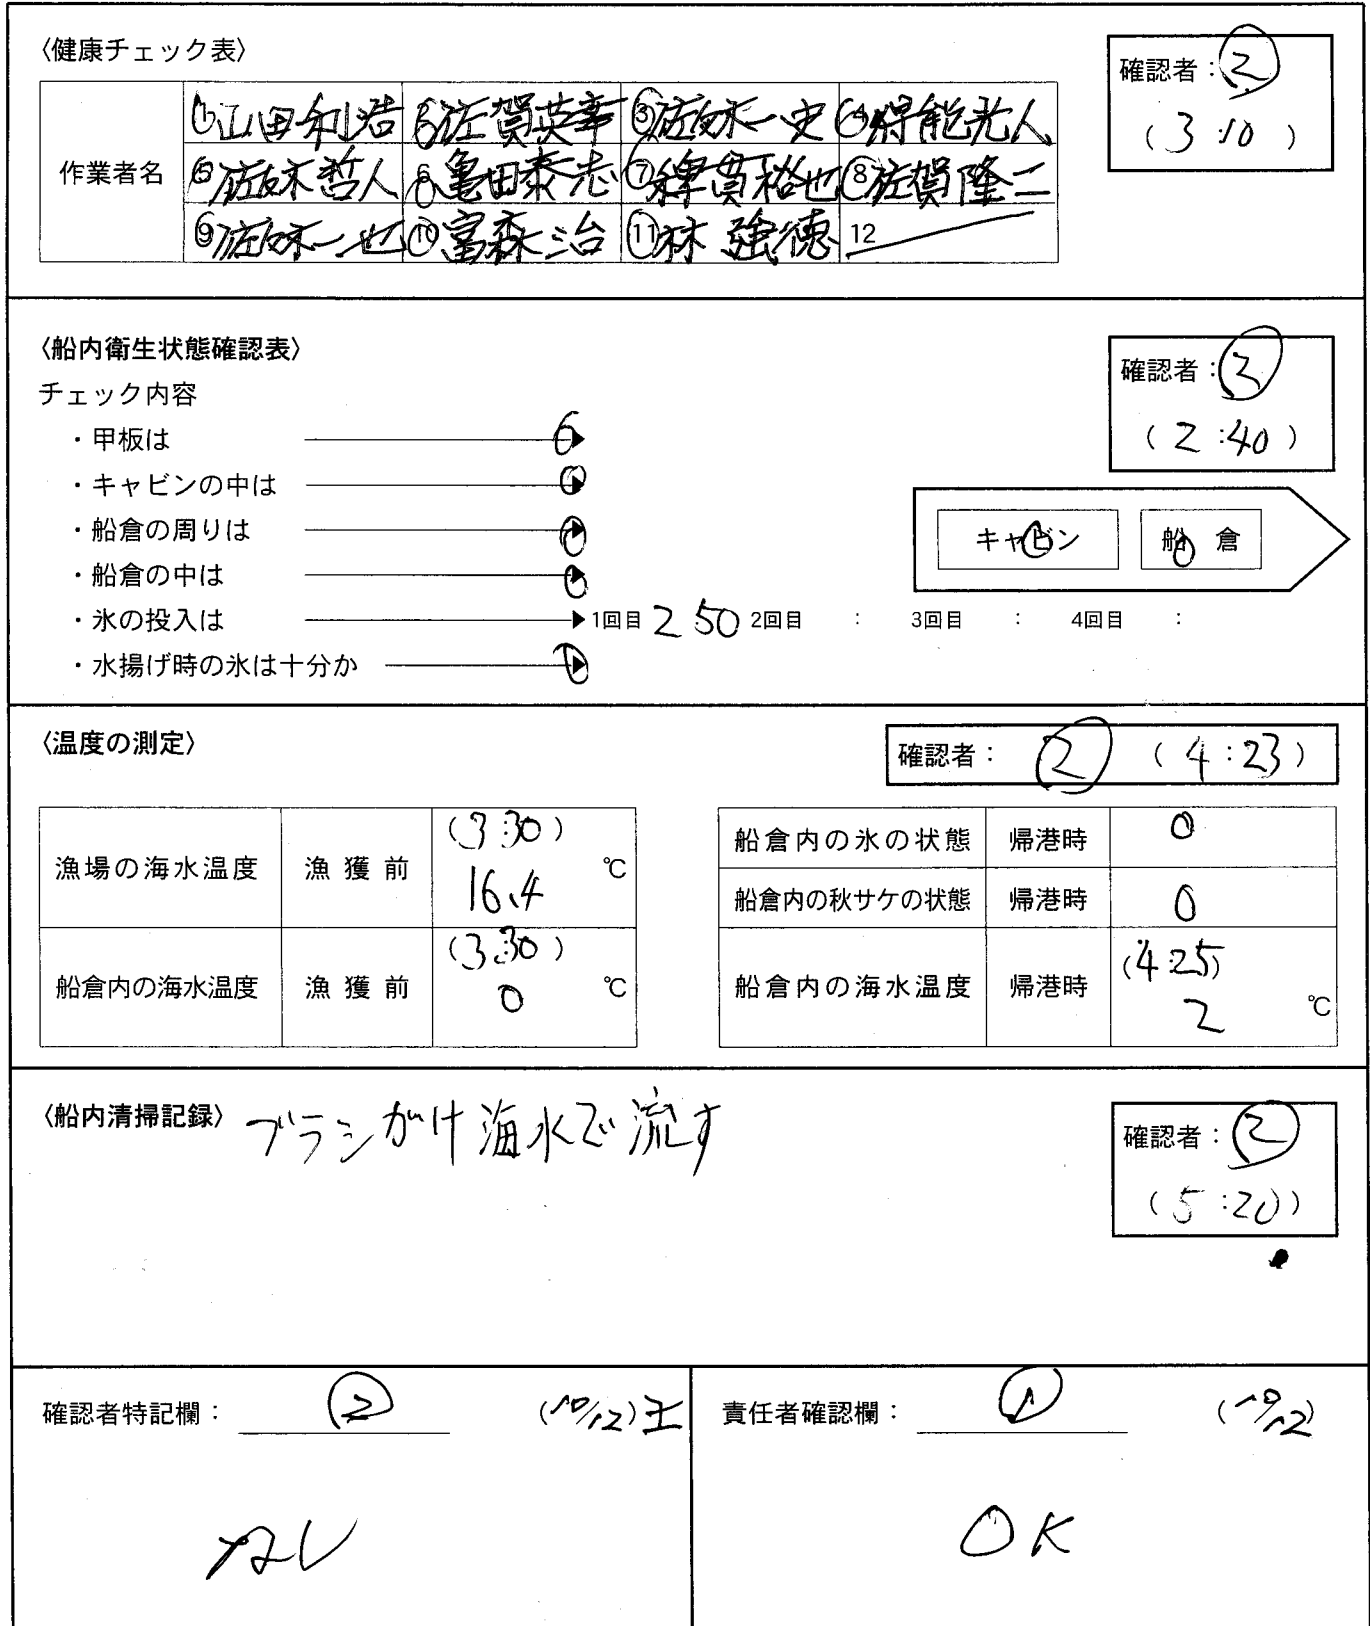 〈健康チェック表〉
確認者：②
(3:10)
作業者名
①山田利浩 ②佐賀英幸 ③佐々木一史 ④得能光人
⑤佐々木哲人 ⑥亀田泰志 ⑦綿貫裕也 ⑧佐賀隆二
⑨佐々木一也 ⑩富森治 ⑪林強徳 12
〈船内衛生状態確認表〉
確認者：
(2:40)
チェック内容
・甲板は
・キャビンの中は
・船倉の周りは
・船倉の中は
キャビン 船倉
・氷の投入は 1回目 2 50 2回目 : 3回目 : 4回目 :
・水揚げ時の氷は十分か
〈温度の測定〉
確認者： ② (4:23)
漁場の海水温度 漁獲前 (3:30) 16.4 ℃
船倉内の海水温度 漁獲前 (3:30) 0 ℃
船倉内の氷の状態 帰港時 0
船倉内の秋サケの状態 帰港時 0
船倉内の海水温度 帰港時 (4:25) 2 ℃
〈船内清掃記録〉 ブラシがけ海水で流す
確認者：②
(5:20)
確認者特記欄： ② (10/12)土
ナシ
責任者確認欄： ① (10/12)
OK